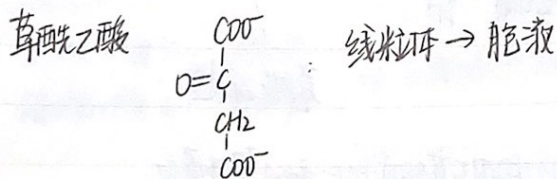 草酰乙酸
COO⁻
O=C
CH2
COO⁻
: 线粒体 → 胞液